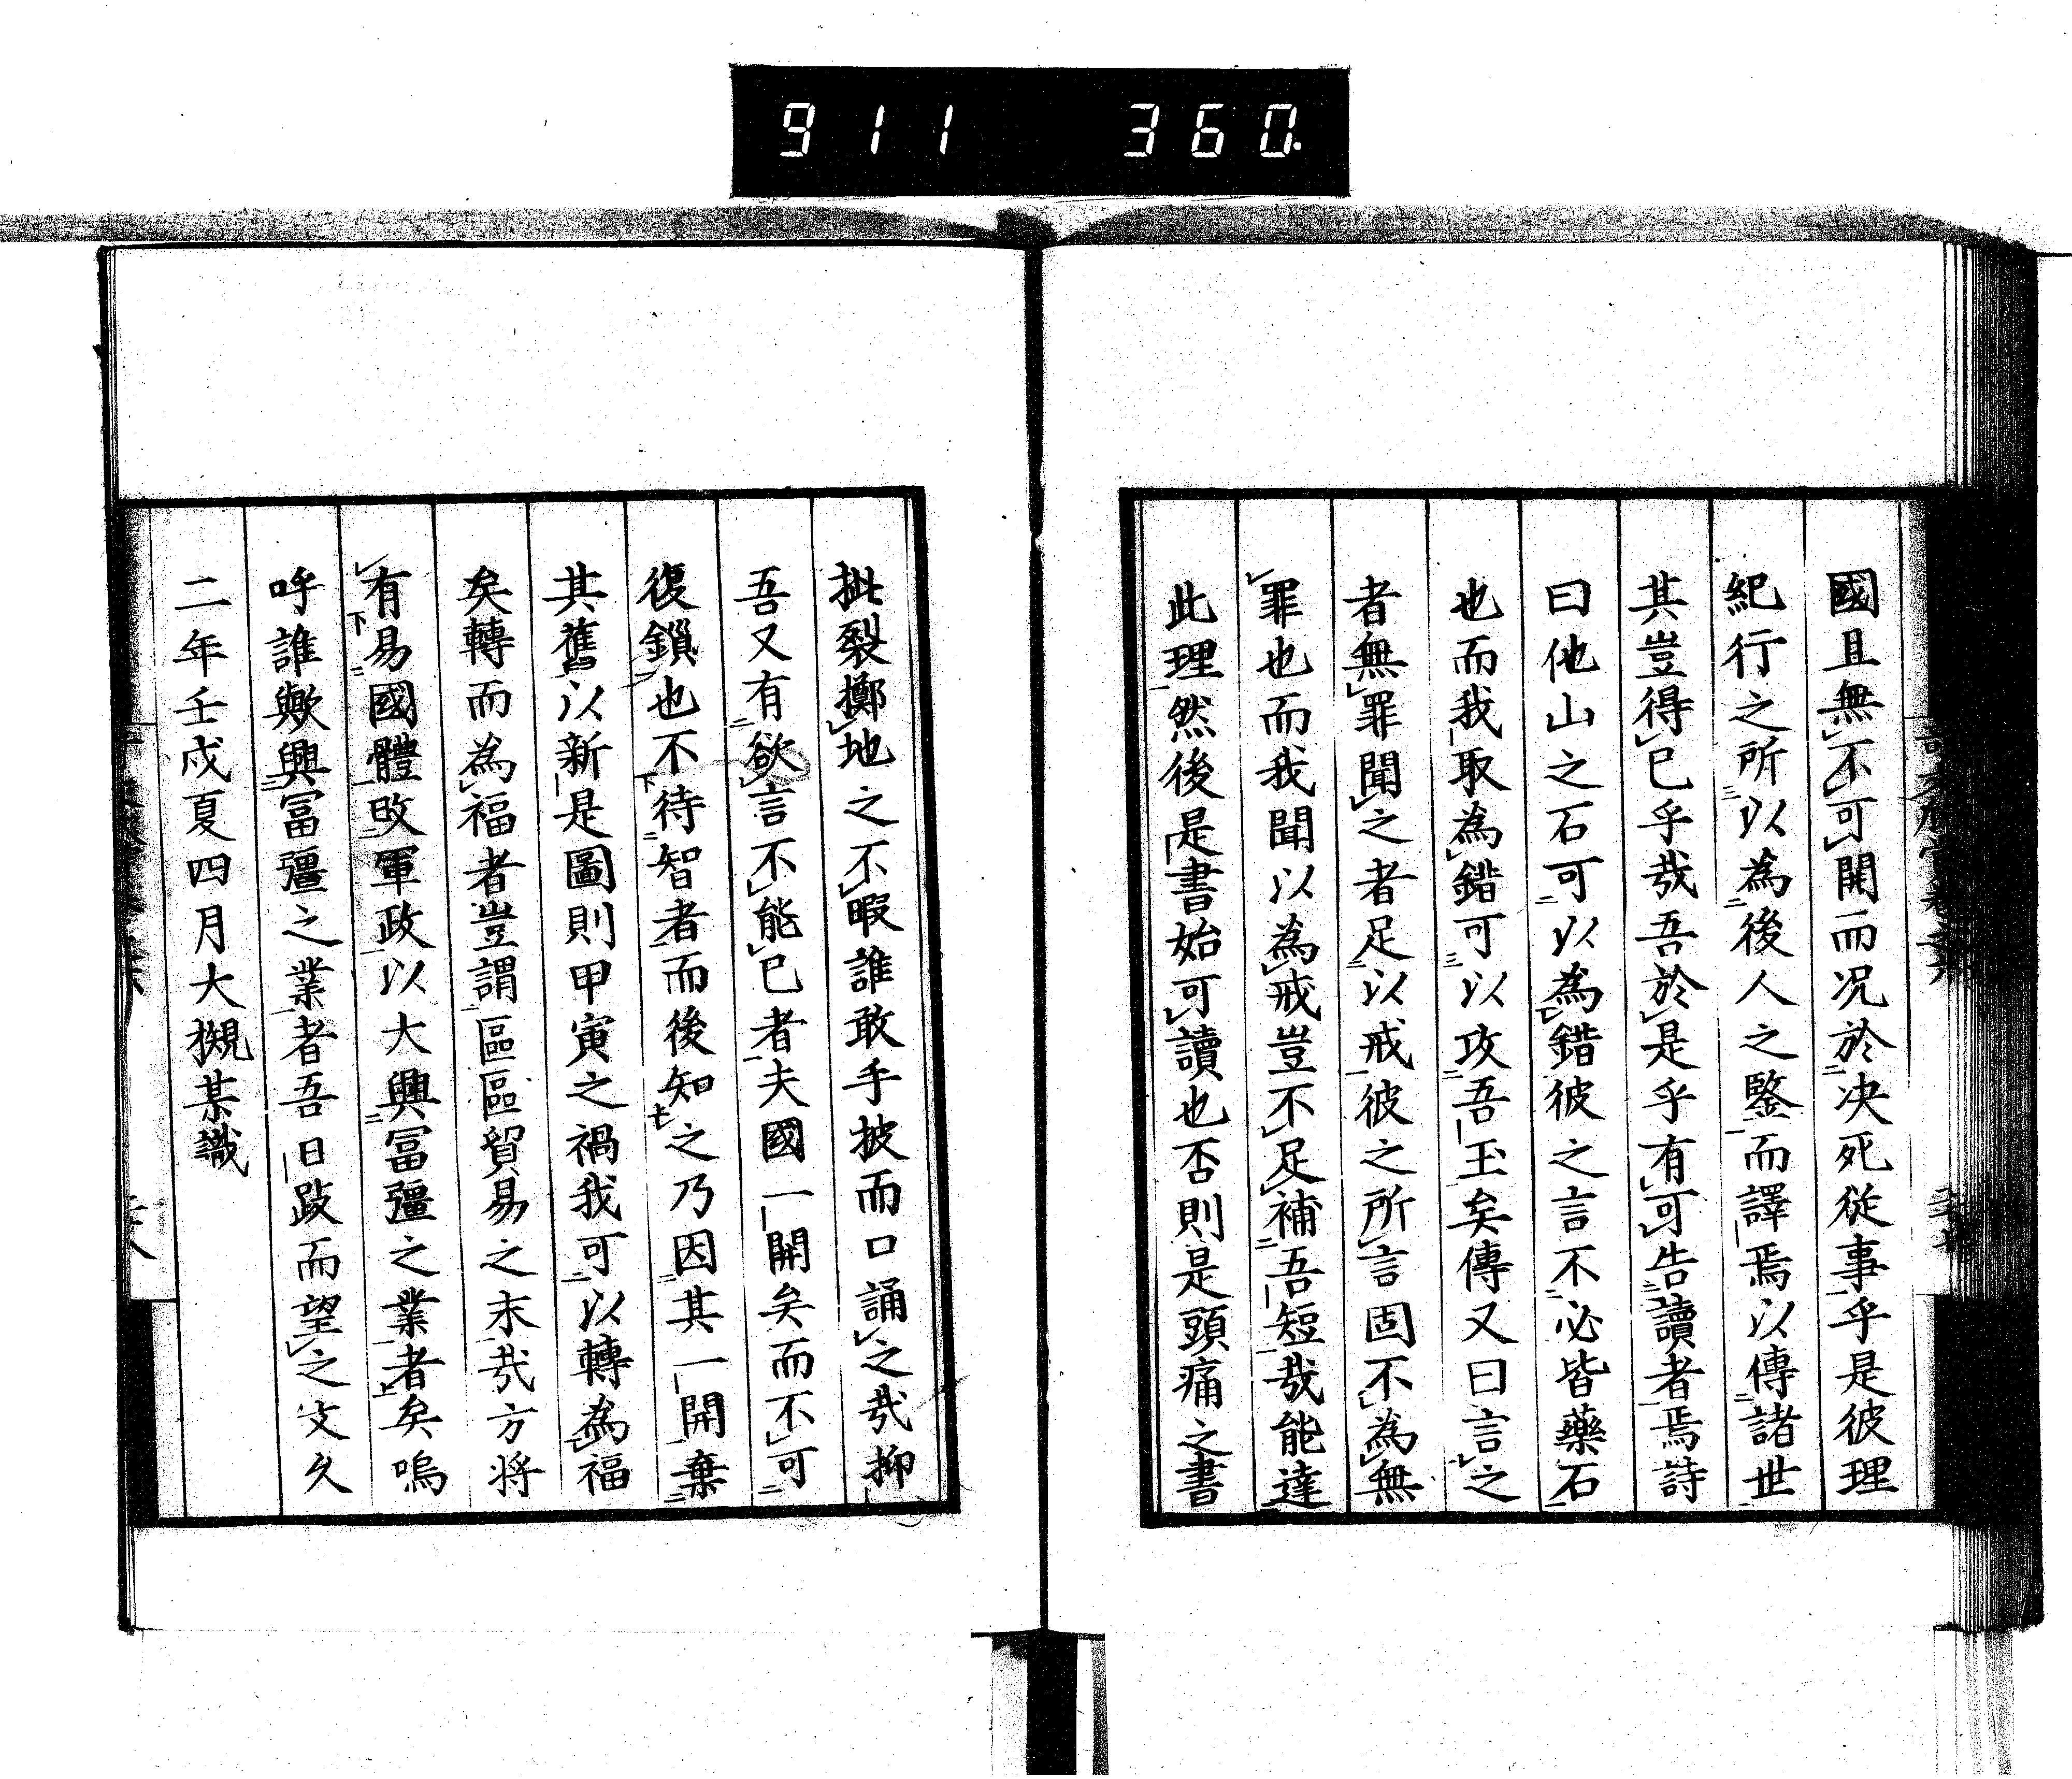 911 360.
國且無不可開而况於决死從事乎是彼理
紀行之所以為後人之鑒而譯焉以傳諸世
其豈得已乎㢤吾於是乎有可告讀者焉詩
曰他山之石可以為錯彼之言不必皆藥石
也而我取為錯可以攻吾玉矣傳又曰言之
者無罪聞之者足以戒彼之所言固不為無
罪也而我聞以為戒豈不足補吾短哉能達
此理然後是書始可讀也否則是頭痛之書
批裂擲地之不暇誰敢手披而口誦之㢤抑
吾又有欲言不能已者夫國一開矣而不可
復鎖也不待智者而後知之乃因其一開棄
其舊以新是圖則甲寅之禍我可以轉為福
矣轉而為福者豈謂區區貿易之末㢤方將
有易國體改軍政以大興冨彊之業者矣嗚
呼誰歟興冨彊之業者吾日跂而望之文久
二年壬戌夏四月大槻某識